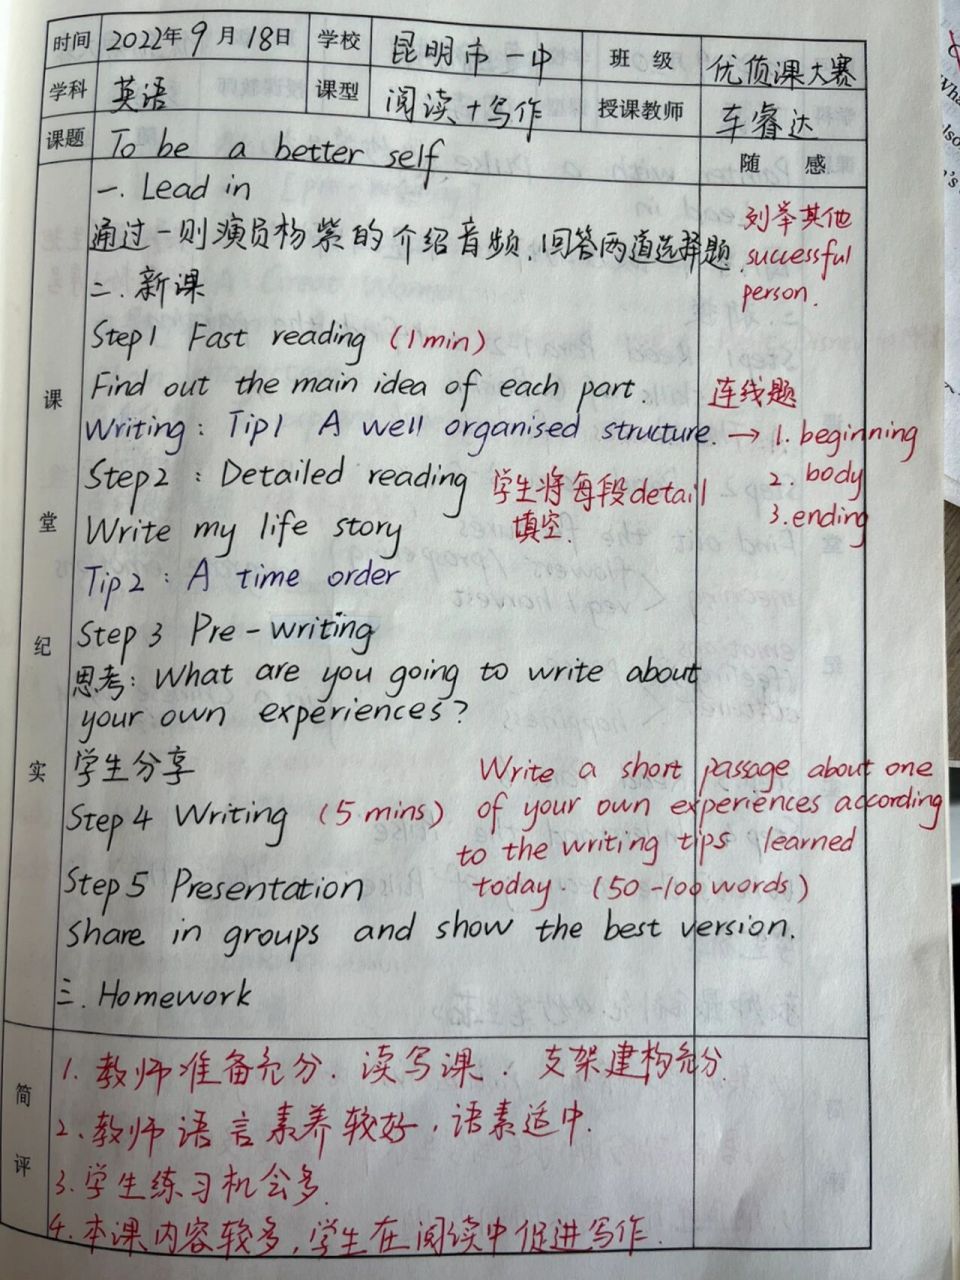 时间 2022年9月18日 学校 昆明市一中 班级 优侦课大赛
学科 英语 课型 阅读+写作 授课教师 车睿达
课题 To be a better self. 随感
课堂纪实
一. Lead in
通过一则演员杨紫的介绍音频,回答两道选择题.
列举其他
successful
person.
二.新课
Step1 Fast reading (1min)
Find out the main idea of each part. 连线题
Writing: Tip1 A well organised structure. → 1. beginning
2. body
3. ending
Step2: Detailed reading 学生将每段detail
填空.
Write my life story
Tip2: A time order
Step3 Pre-writing
思考: What are you going to write about
your own experiences?
学生分享
Step4 Writing (5mins) Write a short passage about one
of your own experiences according
to the writing tips learned
today. (50-100words)
Step5 Presentation
Share in groups and show the best version.
三. Homework
简评
1. 教师准备充分. 读写课. 支架建构充分.
2. 教师语言素养较好,语素适中.
3. 学生练习机会多.
4. 本课内容较多,学生在阅读中促进写作.